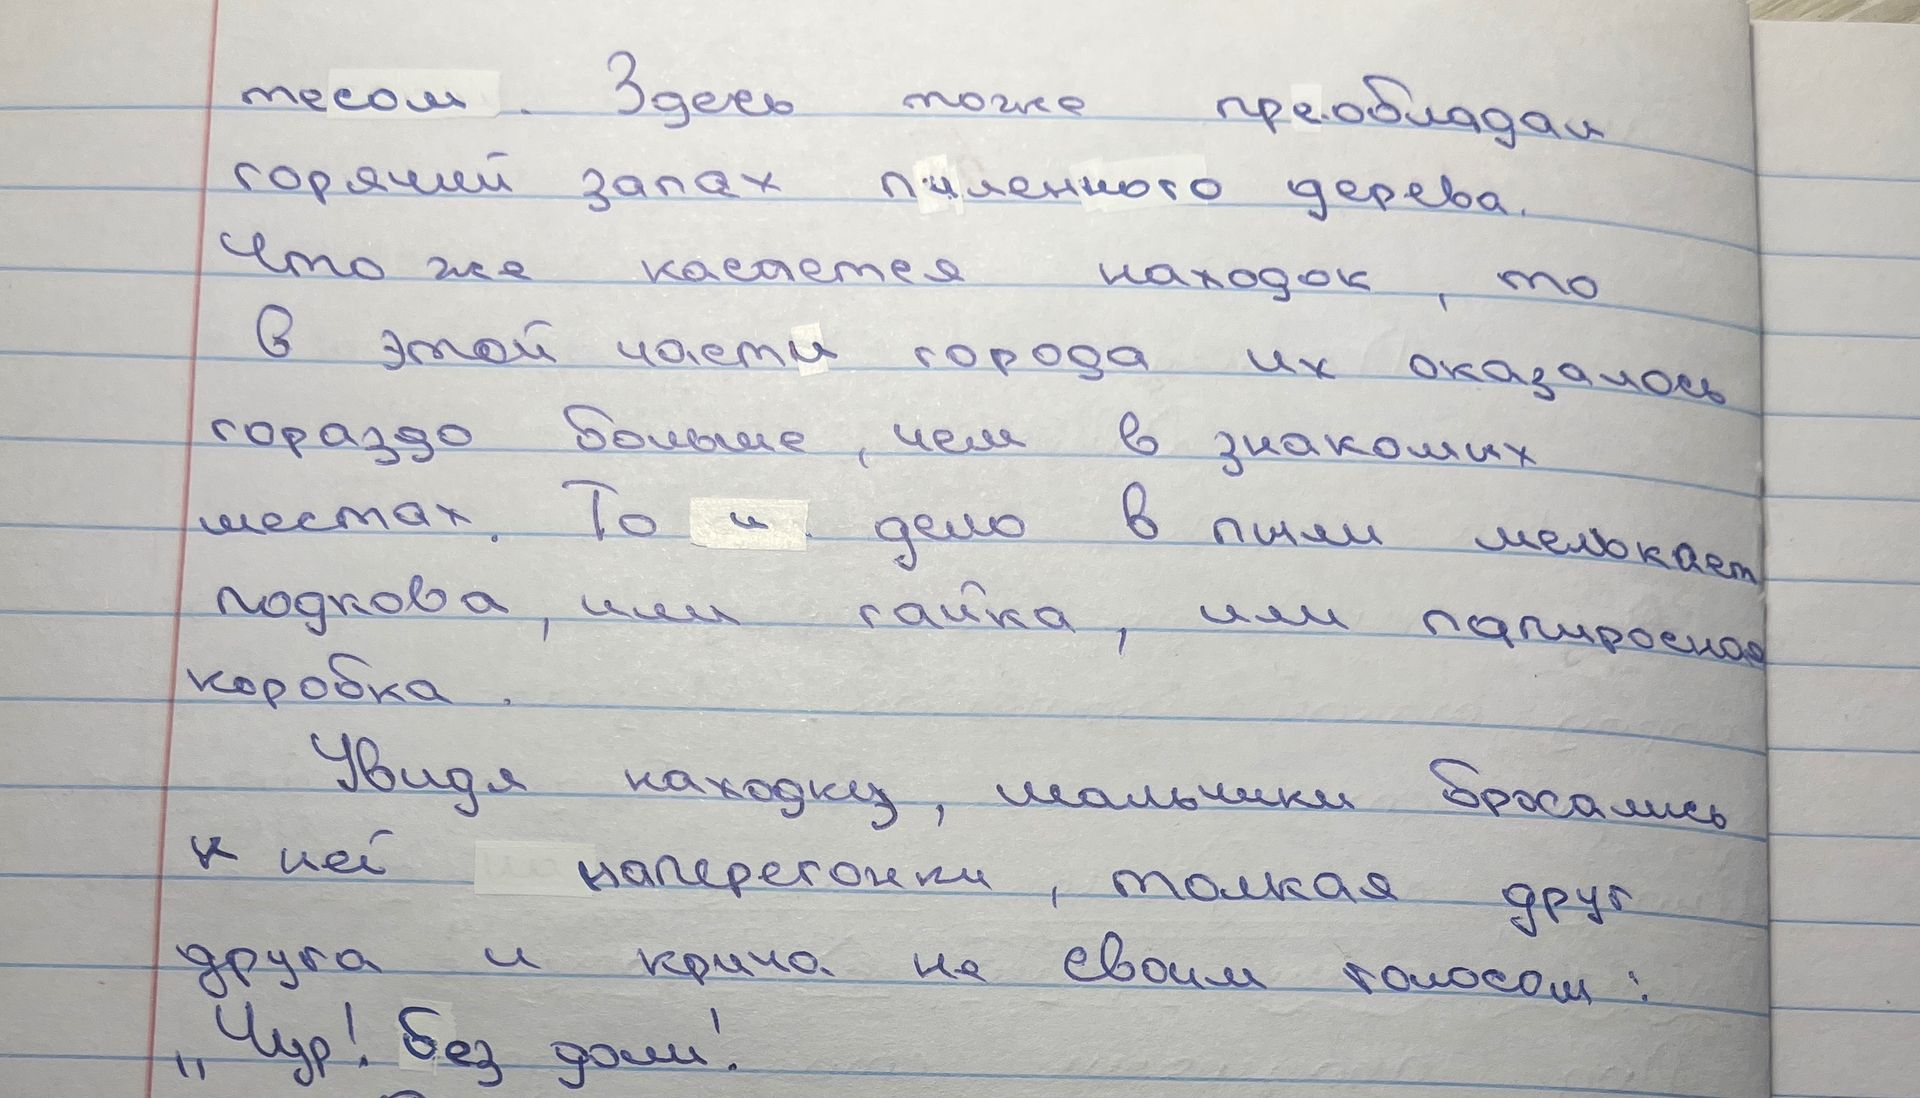 тесом. Здесь тоже преобладал
горячий запах пиленного дерева.
Что же касается находок, то
в этой части города их оказалось
гораздо больше, чем в знакомих
местах. То и дело в пыли мелькает
подкова, или гайка, или папиросная
коробка.
Увидя находку, мальчики бросались
к ней наперегонки, толкая друг
друга и крича не своим голосом:
„Чур! Без доли!